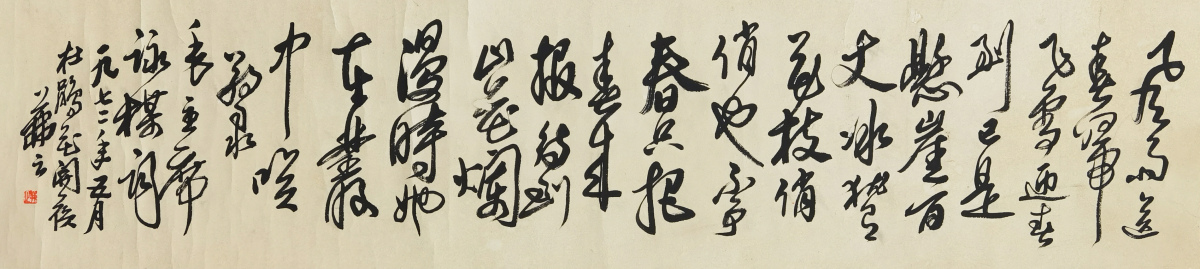 风雨送
春归
飞雪迎春
到已是
懸崖百
丈冰猶有
花枝俏
俏也不争
春只把
春来
报待到
山花爛
漫時她
在叢
中笑
录
毛主席
詠梅词
一九七二年五月
杜鹃花開候
云